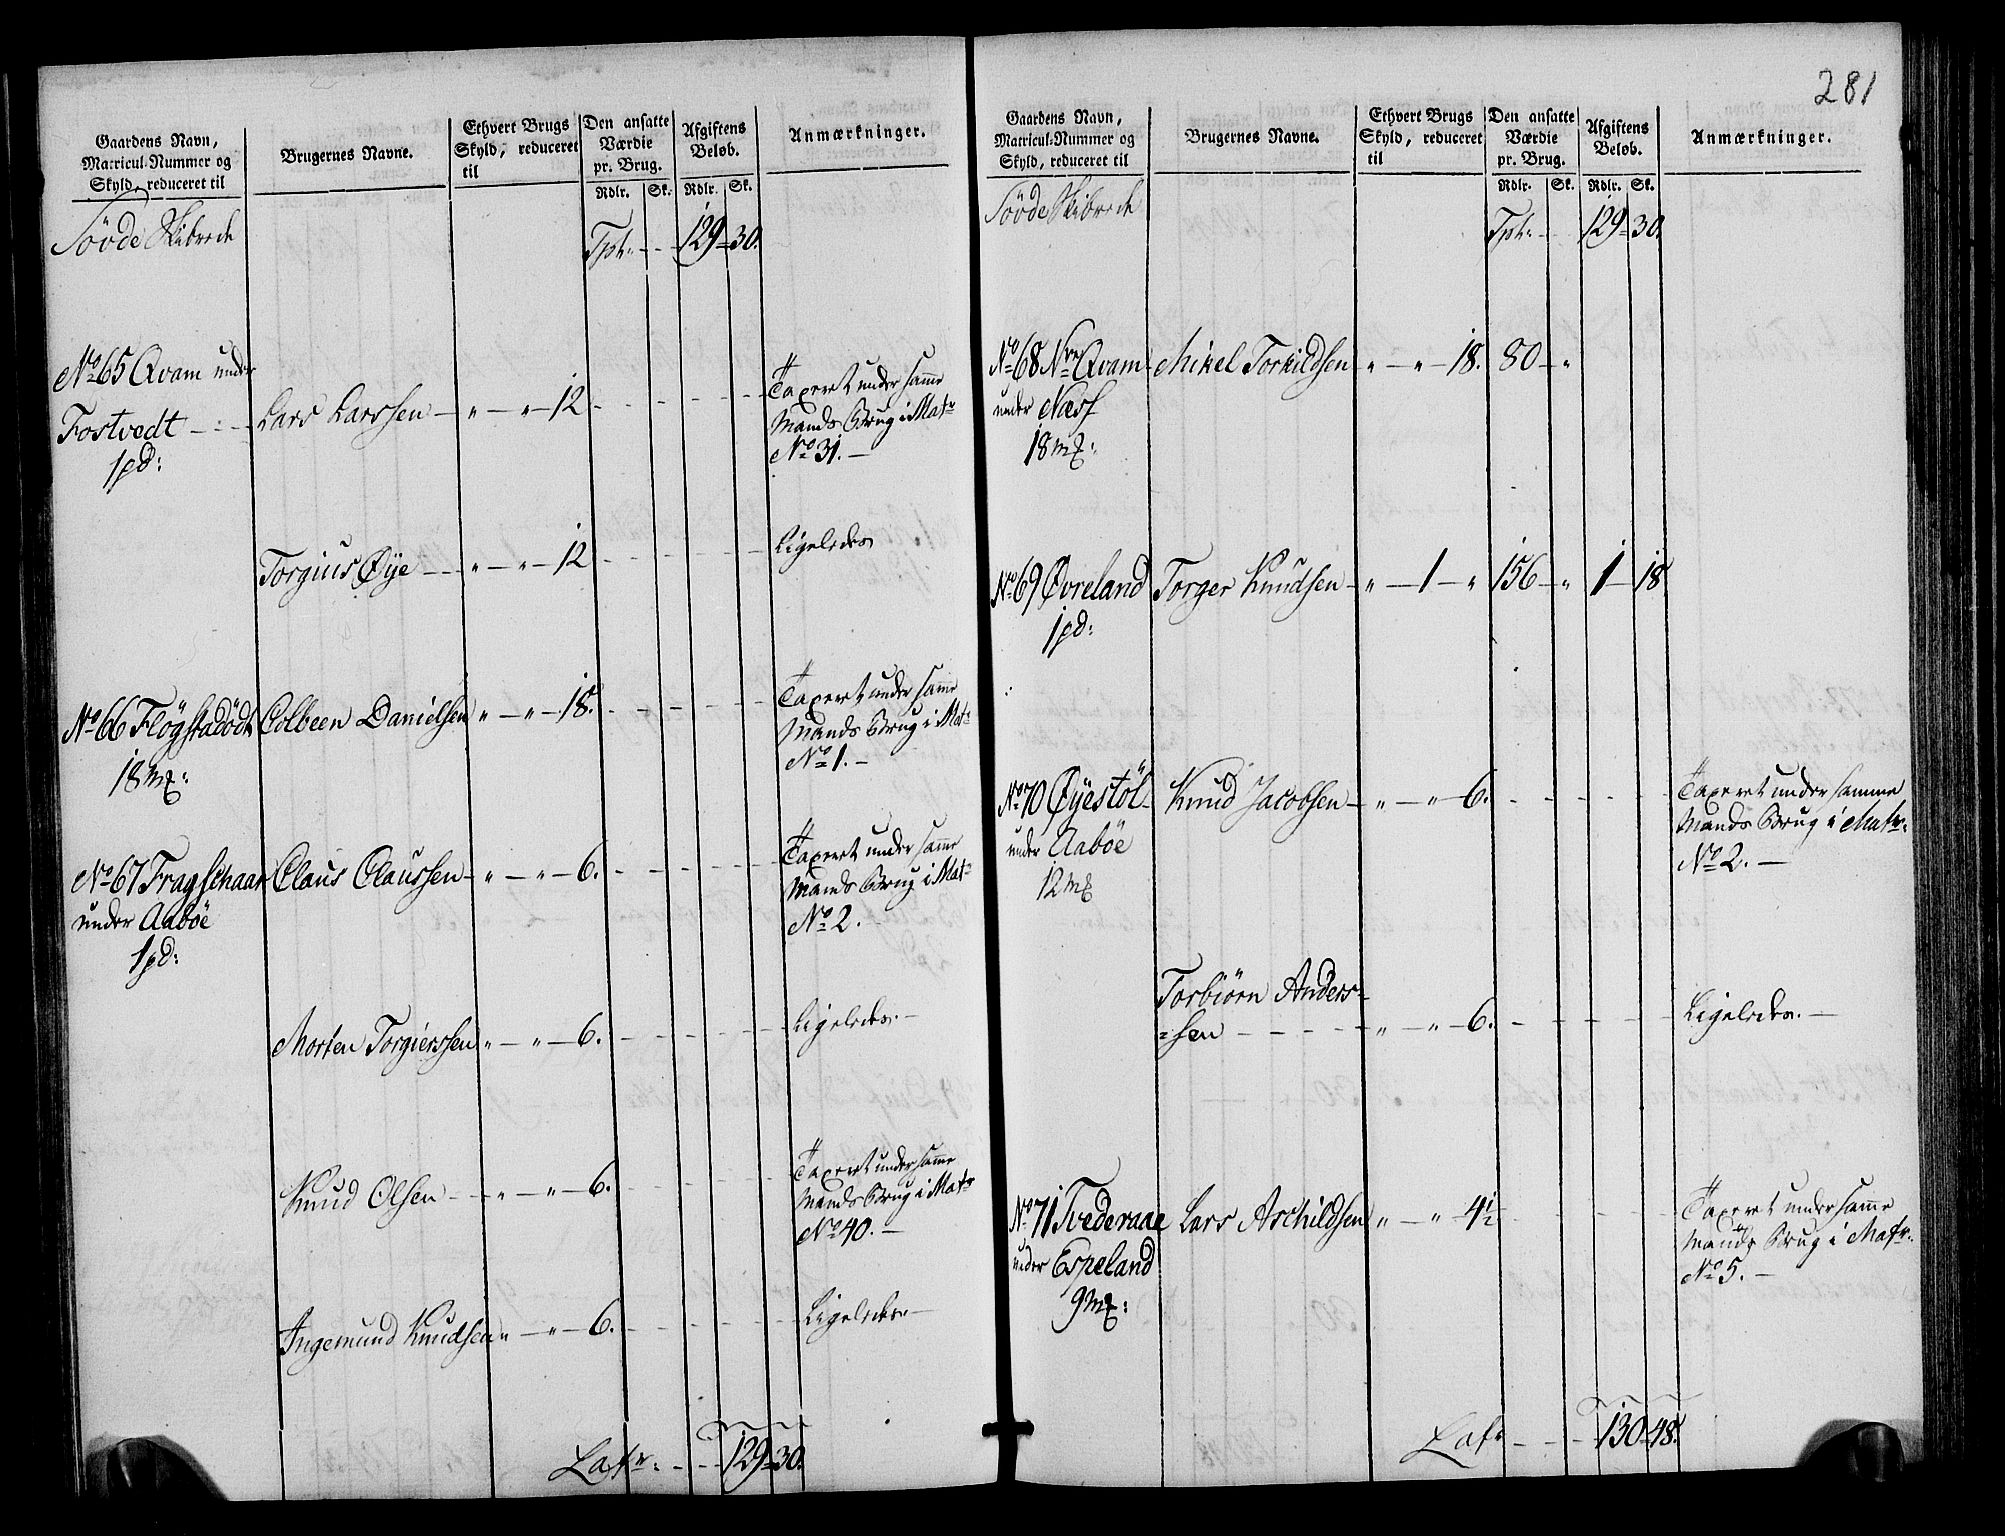 Gaardens Navn,
Matricul-Nummer og
Skyld, reduceret til
Brugernes Navne.
Ethvert Brugs
Skyld, reduceret
til
Den ansatte
Værdie
pr. Brug.
Rdlr. Sk.
Afgiftens
Beløb.
Rdlr. Sk.
Anmærkninger.
Søvde Skibrede
Tpt: 129 - 30.
No 65 Qvam under
Fostvedt
1pd:
Lars Larssen - " - " - 12
Taxeret under samme
Mands Brug i Matr
No 31. -
Torgius Øÿe - " - " - 12
Ligeledes
No 66 Fløgstadødt
18 mk:
Colbeen Danielsen " - " - 18.
Taxeret under samme
Mands Brug i Matr
No 1. -
No 67 Fragschaar
under Aabøe
1pd:
Claus Claussen - " - " - 6.
Taxeret under samme
Mands Brug i Matr
No 2.
Morten Torgierssen " - " - 6.
Ligeledes. -
Knud Olsen - " - " - 6.
Taxeret under samme
Mands Brug i Matr
No 40. -
Ingemund Knudsen " - " - 6.
Ligeledes. -
Latr: 129 - 30.
281
Gaardens Navn,
Matricul-Nummer og
Skyld, reduceret til
Brugernes Navne.
Ethvert Brugs
Skyld, reduceret
til
Den ansatte
Værdie
pr. Brug.
Rdlr. Sk.
Afgiftens
Beløb.
Rdlr. Sk.
Anmærkninger.
Søvde Skibrede
Tpt: 129 - 30.
No 68 Nre Qvam
under Næss
18 mk:
Mikel Torkildsen " - " - 18. 80 - "
No 69 Øvreland
1pd:
Torger Knudsen - " - 1 - " 156 - " 1 - 18
No 70 Øÿestøl
under Aabøe
12 mk
Knud Jacobsen - " - " - 6.
Taxeret under samme
Mands Brug i Matr:
No 2. -
Torbiørn Anders-
=sen - " - " - 6.
Ligeledes. -
No 71 Tvederaae
under Espeland
9 mk:
Lars Aschildsen " - " 4½
Taxeret under samme
Mands Brug i Matr:
No 5. -
Latr 130 - 48.